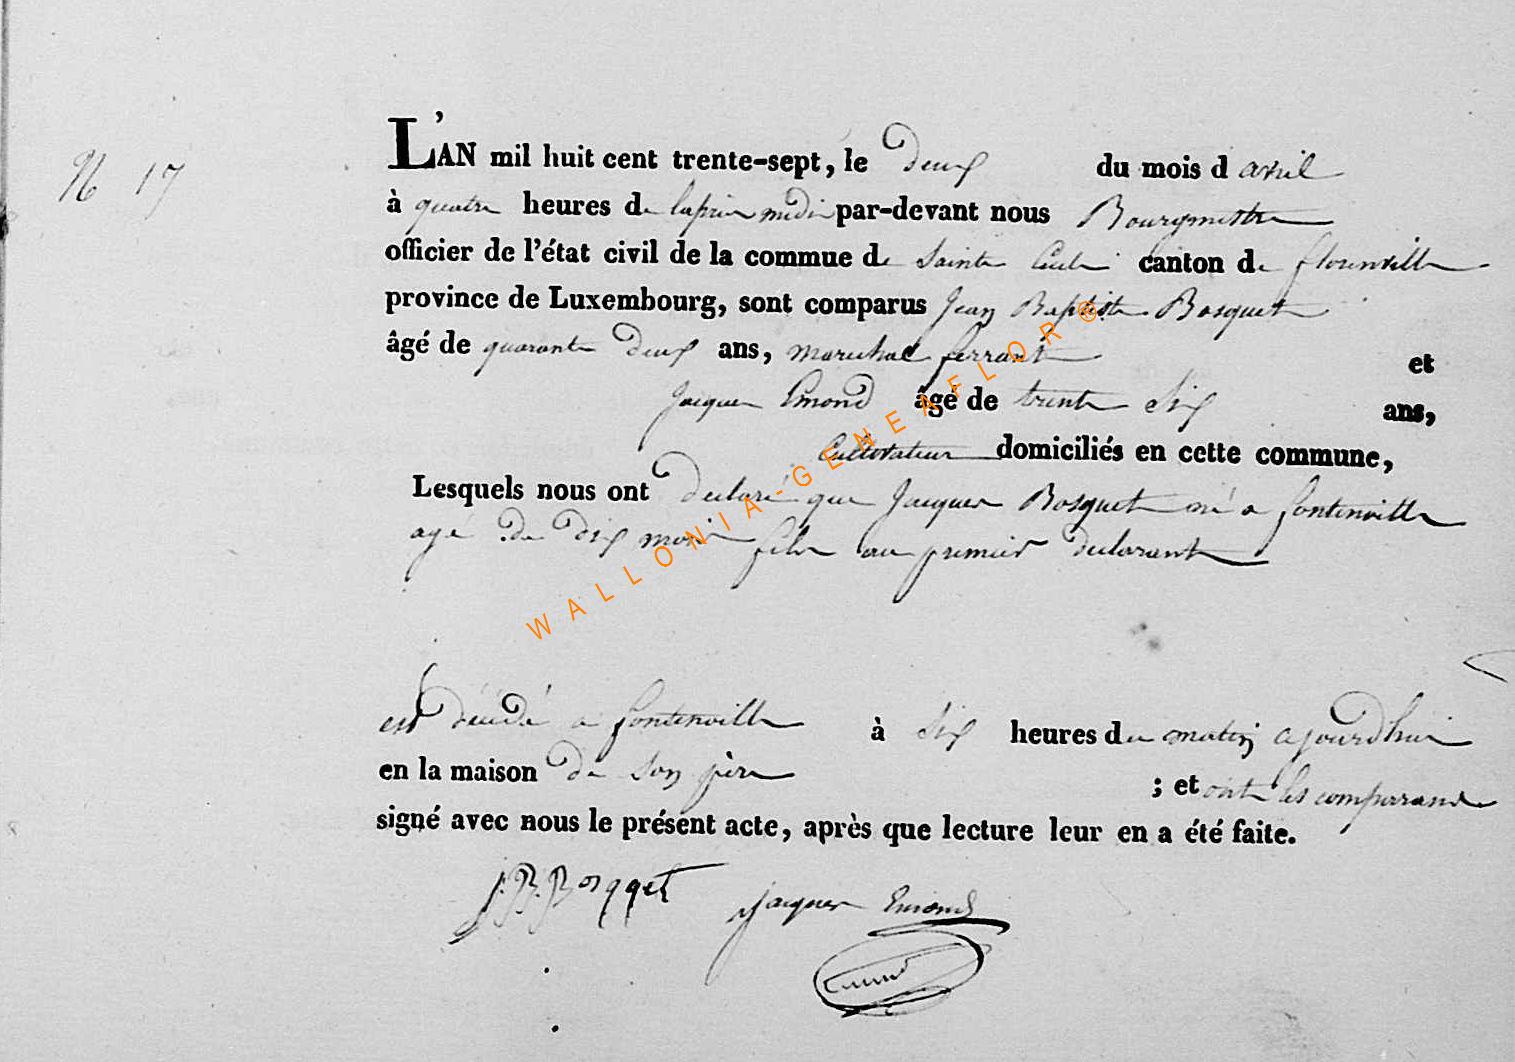 N 17
L'AN mil huit cent trente-sept, le deux du mois d avril
à quatre heures de laprie midi par-devant nous Bourgmestre
officier de l'état civil de la commue de Sainte Cecile canton de florenville
province de Luxembourg, sont comparus Jean Baptiste Bosquet
âgé de quarante deux ans, marechal ferrant et
Jacques Emond âgé de trente Six ans,
Cultivateur domiciliés en cette commune,
Lesquels nous ont declaré que Jacques Bosquet né a fontenoille
agé de dix mois fils au premier declarant
est décédé a fontenoille à Six heures du matin ajourdhui
en la maison de son père ; et ont les comparrans
signé avec nous le présent acte, après que lecture leur en a été faite.
J.B. Bosqget Jacques Emond
WALLONIA-GENEAFLOR®